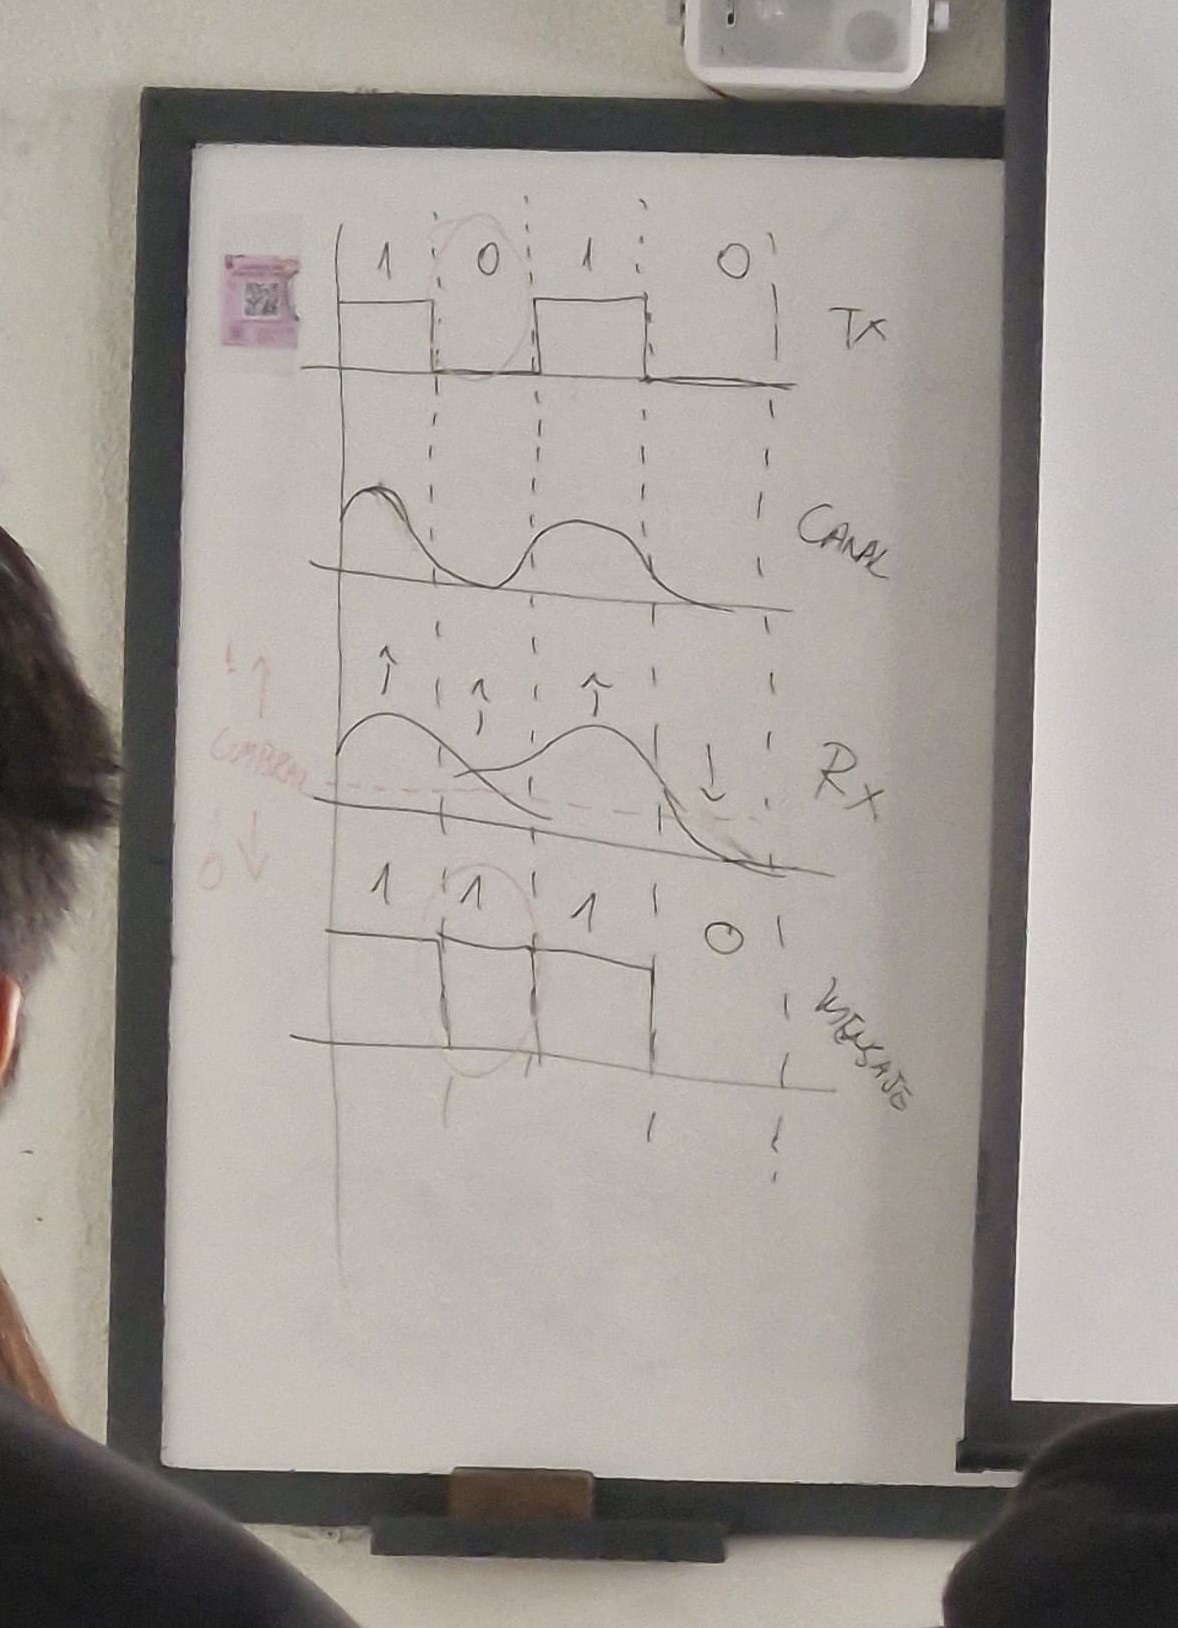 1 0 1 0
TX
CANAL
↑ ↑ ↑ ↓
1 ↑
UMBRAL
RX
0 ↓
1 1 1 0
MENSAJE